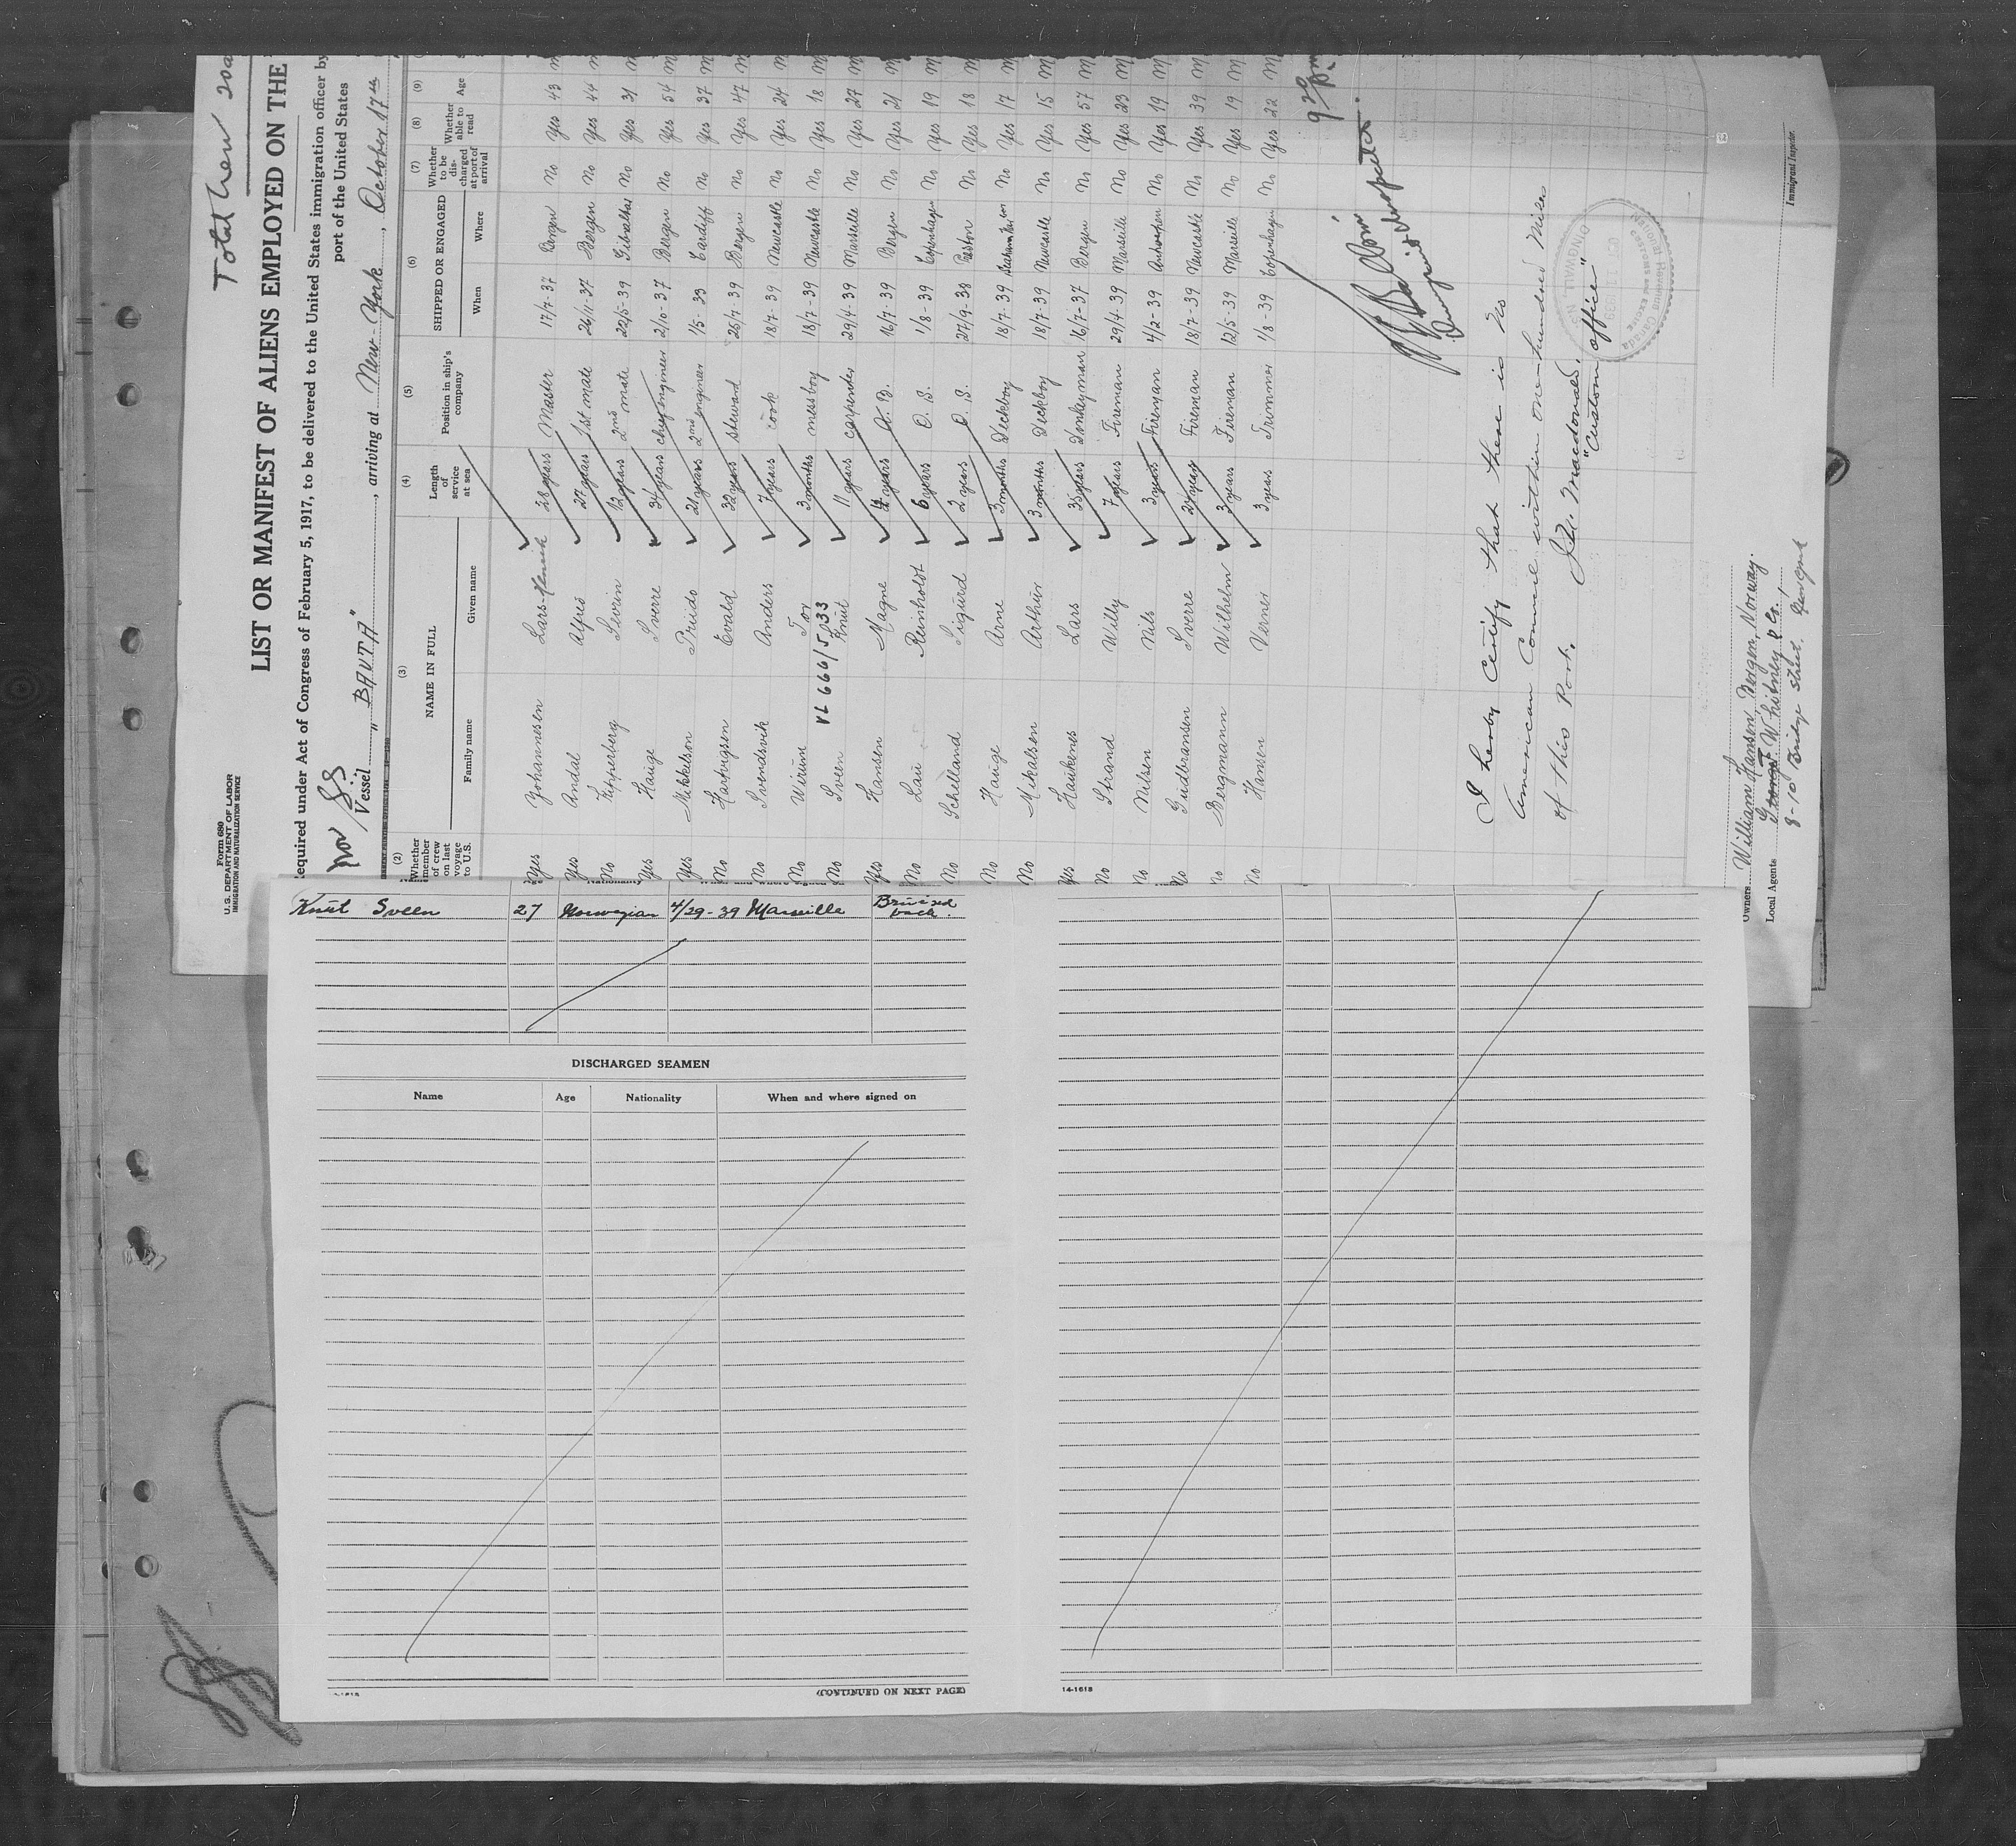 Total Crew 20
Form 680
U.S. DEPARTMENT OF LABOR
IMMIGRATION AND NATURALIZATION SERVICE
LIST OR MANIFEST OF ALIENS EMPLOYED ON THE
equired under Act of Congress of February 5, 1917, to be delivered to the United States immigration officer by
port of the United States
Nor SS
Vessel "BAUTA", arriving at New-York, October 17th
(2) (3) (4) (5) (6) (7) (8) (9)
Whether member of crew on last voyage to U.S. NAME IN FULL Family name Given name Length of service at sea Position in ship's company SHIPPED OR ENGAGED When Where Whether to be discharged at port of arrival Whether able to read Age
Yes Johannesen Lars-Henrik 28 years Master 17/7-37 Bergen No Yes 43 M
Yes Andal Alfred 27 years 1st mate 26/11-37 Bergen No Yes 44 M
No Zipperberg Severin 12 years 2nd mate 22/5-39 Gibraltar No Yes 31 M
Yes Hauge Sverre 34 years chief engineer 2/10-37 Bergen No Yes 54 M
Yes Mikkelson Priido 21 years 2nd engineer 1/5-33 Cardiff No Yes 37 M
No Hartvigsen Evald 32 years Steward 25/7-39 Bergen No Yes 47 M
No Svendsvik Anders 7 years cook 18/7-39 Newcastle No Yes 24 M
No Wirum Tor 3 months messboy 18/7-39 Newcastle No Yes 18 M
VL 666/5033
No Sveen Knut 11 years carpenter 29/4-39 Marseille No Yes 27 M
Yes Hansen Magne 4 years A.B. 16/7-39 Bergen No Yes 21 M
No Lau Reinholdt 6 years O.S. 1/8-39 Copenhagen No Yes 19 M
No Schelland Sigurd 2 years O.S. 27/9-38 Preston No Yes 18 M
No Hauge Arne 3 months Deckboy 18/7-39 No Yes 17 M
No Mikalsen Arthur 3 months Deckboy 18/7-39 Newcastle No Yes 15 M
Yes Haukenes Lars 35 years Donkeyman 16/7-37 Bergen No Yes 57 M
No Strand Willy 7 years Fireman 29/4-39 Marseille No Yes 23 M
No Nilsen Nils 3 years Fireman 4/2-39 Antwerpen No Yes 19 M
No Gudbransen Sverre 24 years Fireman 18/7-39 Newcastle No Yes 39 M
No Bergmann Wilhelm 3 years Fireman 12/5-39 Marseille No Yes 19 M
No Hansen Verner 3 years Trimmer 1/8-39 Copenhagen No Yes 22 M
I hereby Certify that there is no
American Consul within one hundred Miles
of this Port.
Macdonald.
"Customs office"
Immigrant Inspector.
Owners William Hansen, Bergen, Norway.
Local Agents Whitney & Co.
8-10 Bridge Street, New York
Knut Sveen 27 Norwegian 4/29-39 Marseille Bruised back.
DISCHARGED SEAMEN
Name Age Nationality When and where signed on
(CONTINUED ON NEXT PAGE)
14-1615